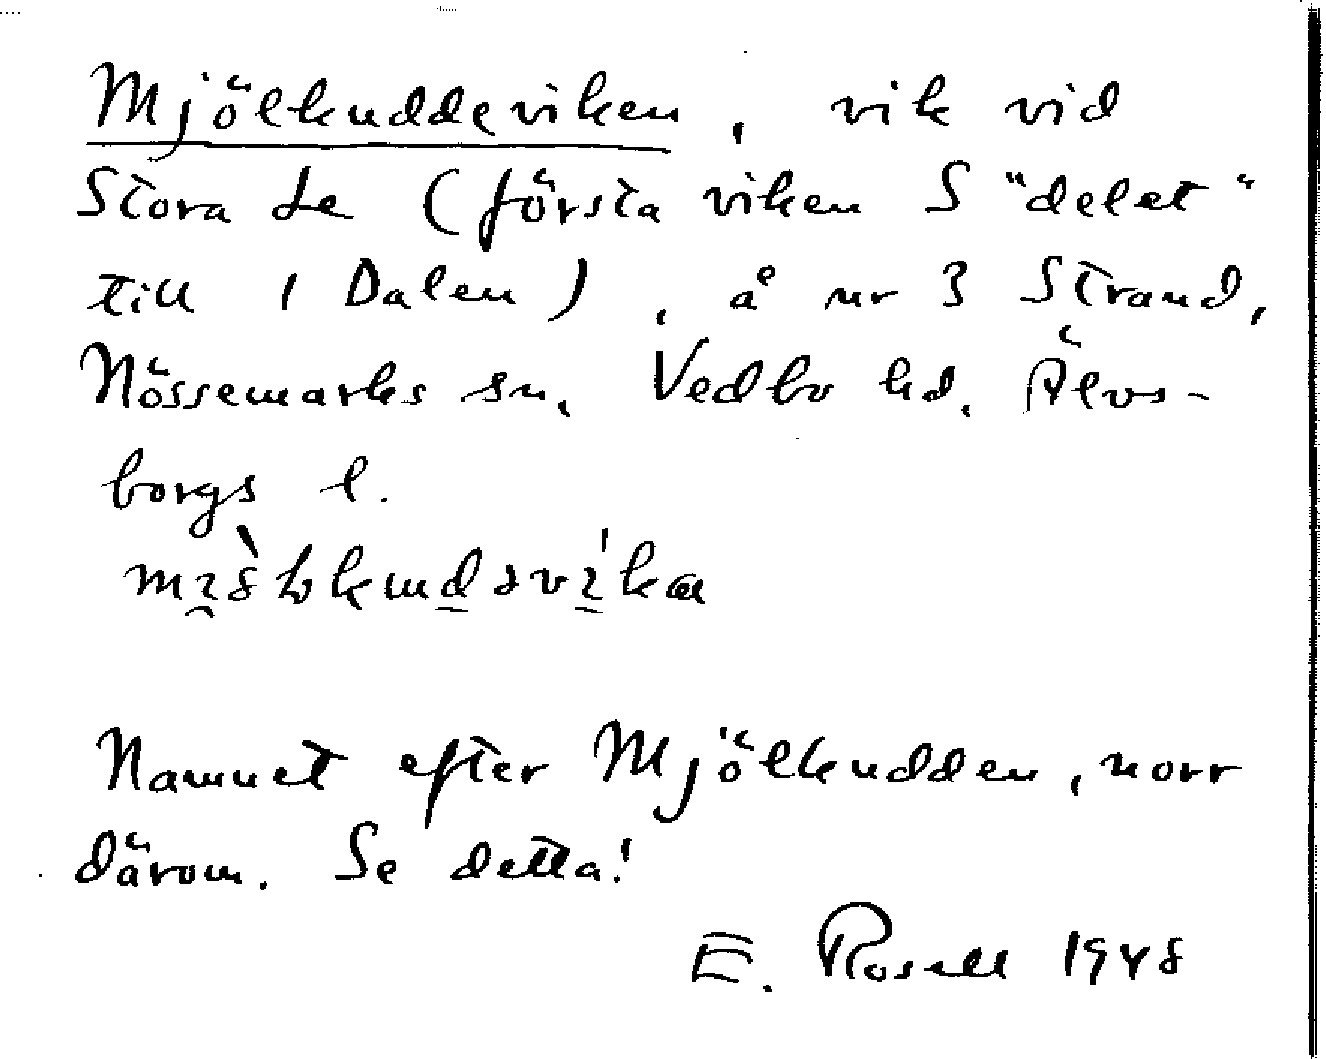 Mjölkuddeviken, vik vid
Stora Le (första viken S "delet"
till 1 Dalen), å nr 3 Strand,
Nössemarks sn, Vedbo hd, Älvs-
borgs l.
Namnet efter Mjölkudden, norr
därom. Se detta!
E. Rosell 1948